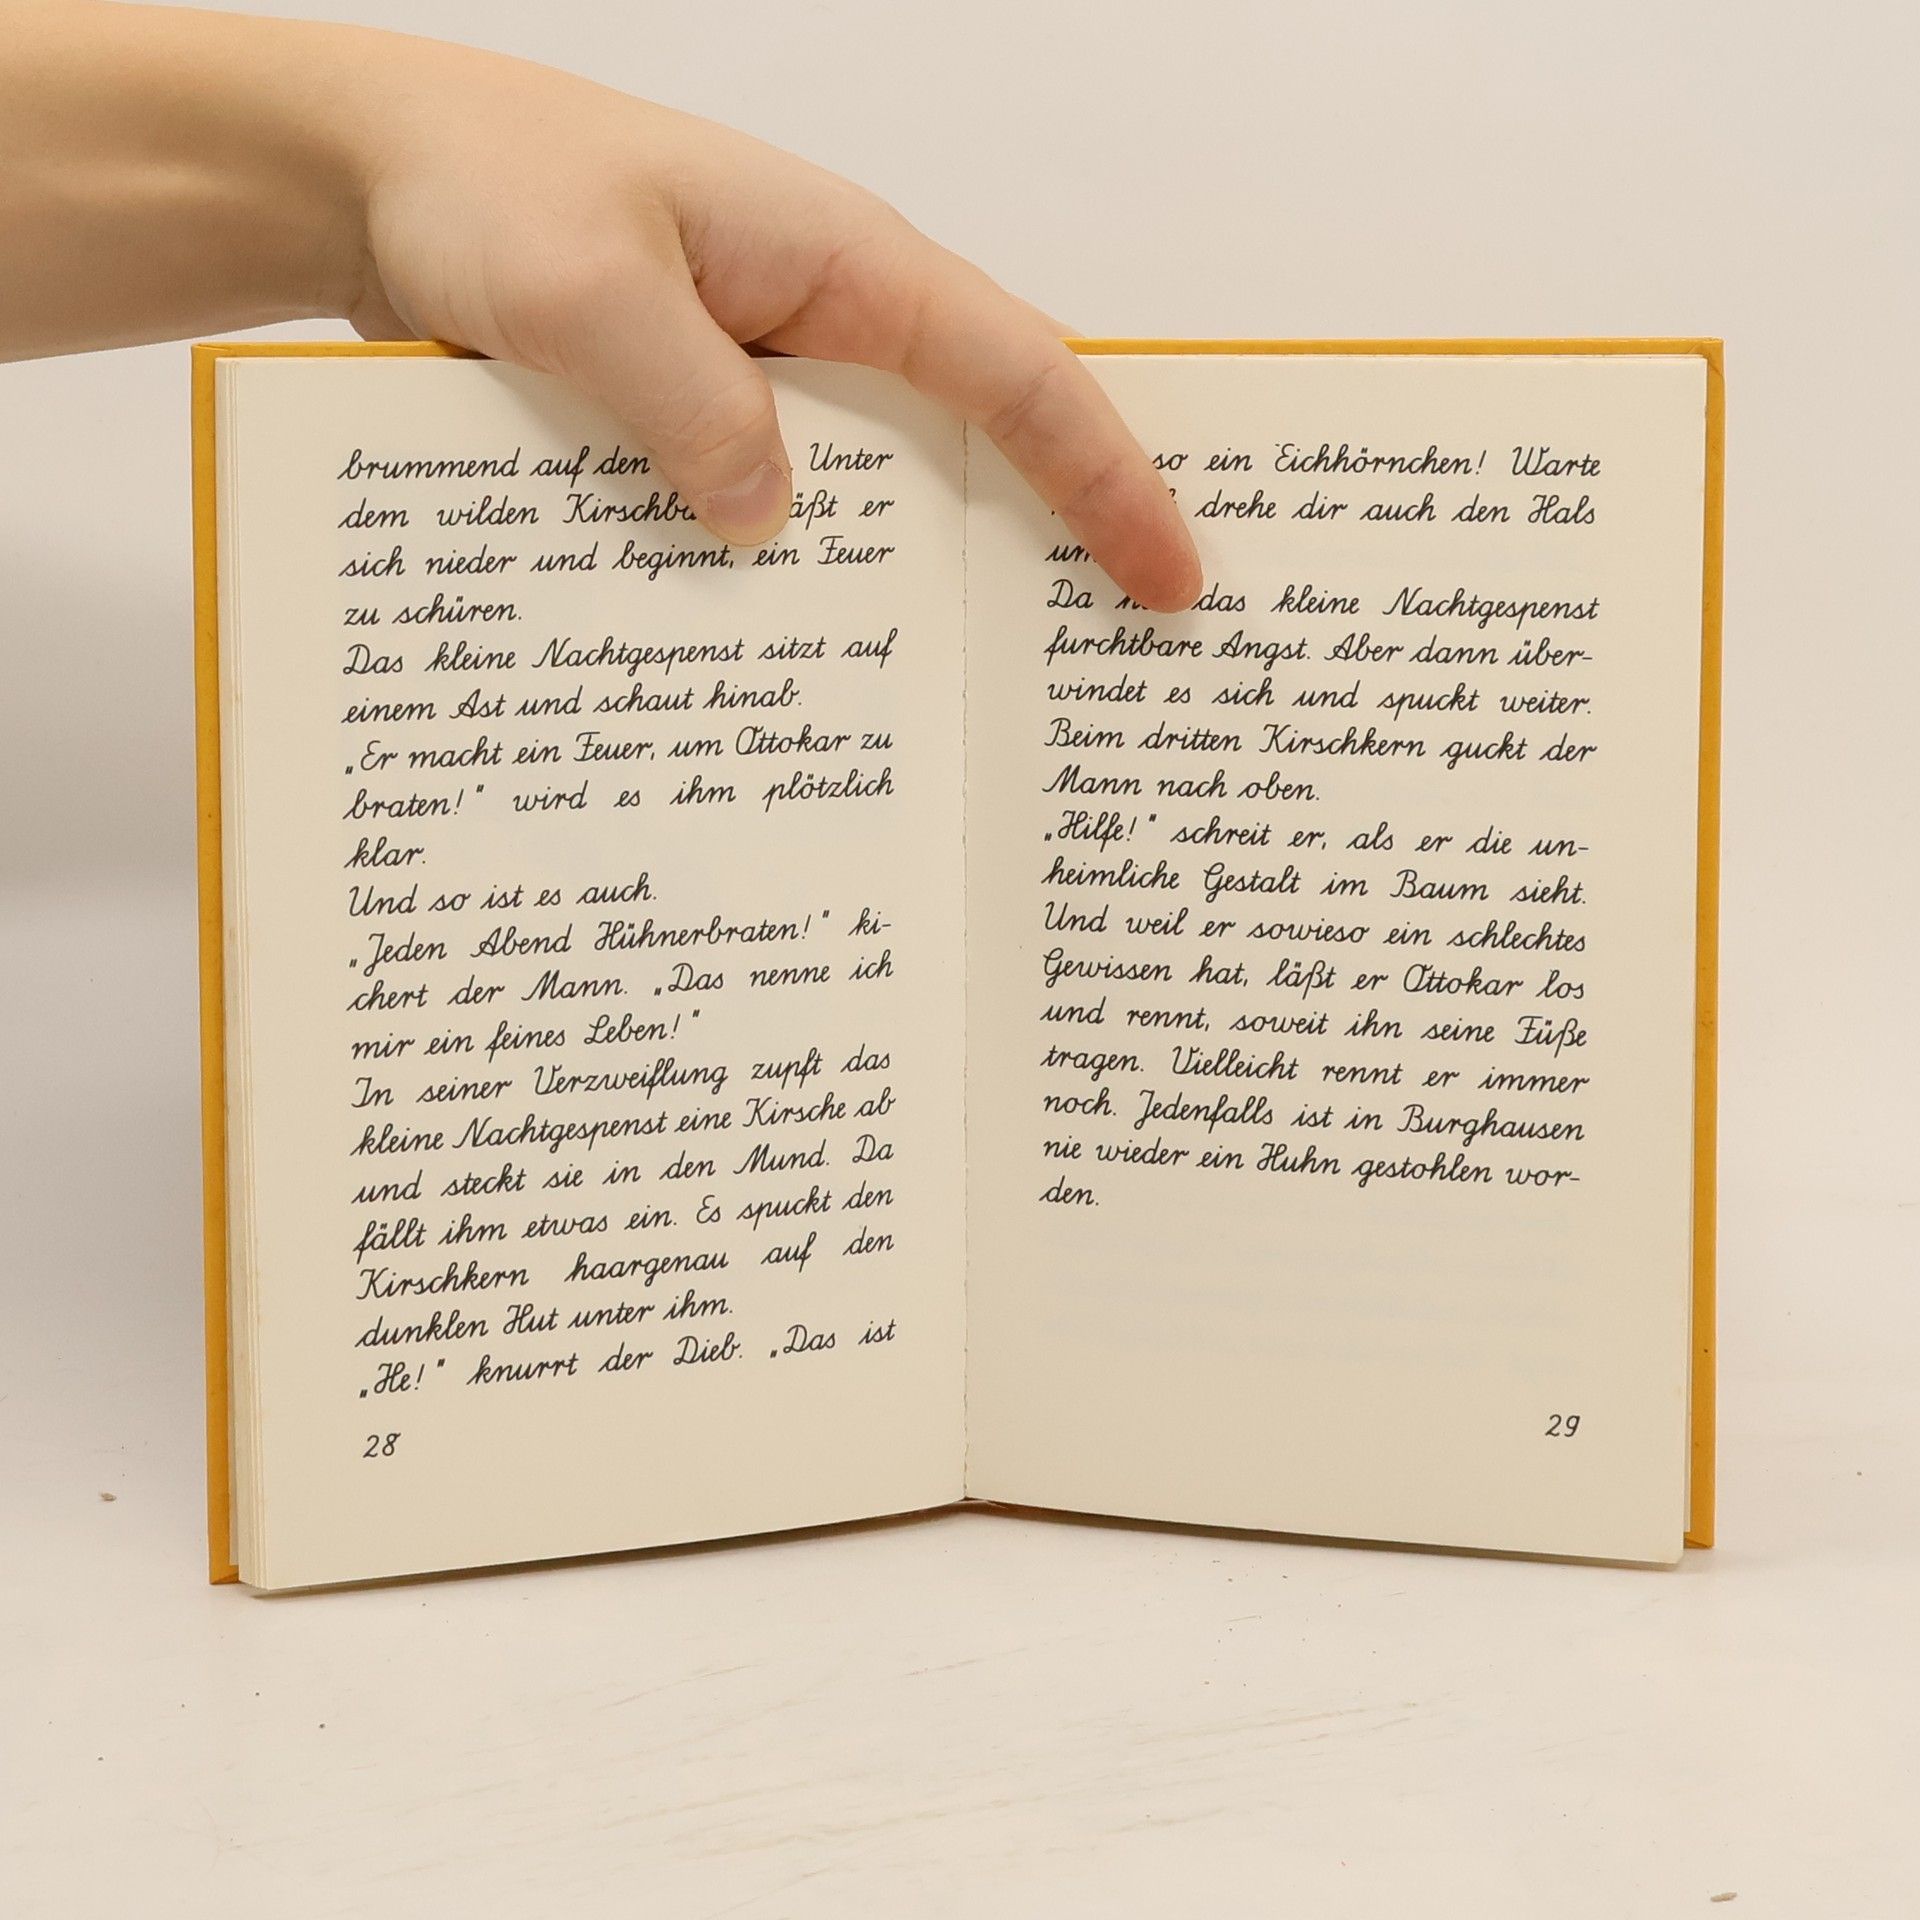 brummend auf den Unter
dem wilden er
sich nieder und beginnt, ein Feuer
zu schüren.
Das kleine Nachtgespenst sitzt auf
einem Ast und schaut hinab.
„Er macht ein Feuer, um Ottokar zu
braten!" wird es ihm plötzlich
klar.
Und so ist es auch.
„Jeden Abend Hühnerbraten!" ki-
chert der Mann. „Das nenne ich
mir ein feines Leben!"
In seiner Verzweiflung zupft das
kleine Nachtgespenst eine Kirsche ab
und steckt sie in den Mund. Da
fällt ihm etwas ein. Es spuckt den
Kirschkern haargenau auf den
dunklen Hut unter ihm.
„He!" knurrt der Dieb. „Das ist
28
so ein Eichhörnchen! Warte
drehe dir auch den Hals
Da das kleine Nachtgespenst
furchtbare Angst. Aber dann über-
windet es sich und spuckt weiter.
Beim dritten Kirschkern guckt der
Mann nach oben.
„Hilfe!" schreit er, als er die un-
heimliche Gestalt im Baum sieht.
Und weil er sowieso ein schlechtes
Gewissen hat, läßt er Ottokar los
und rennt, soweit ihn seine Füße
tragen. Vielleicht rennt er immer
noch. Jedenfalls ist in Burghausen
nie wieder ein Huhn gestohlen wor-
den.
29